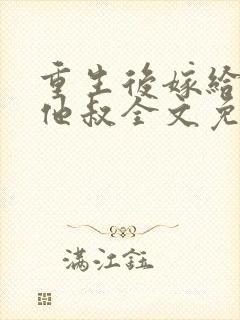 重生後嫁給
他叔全文免
滿江鈺